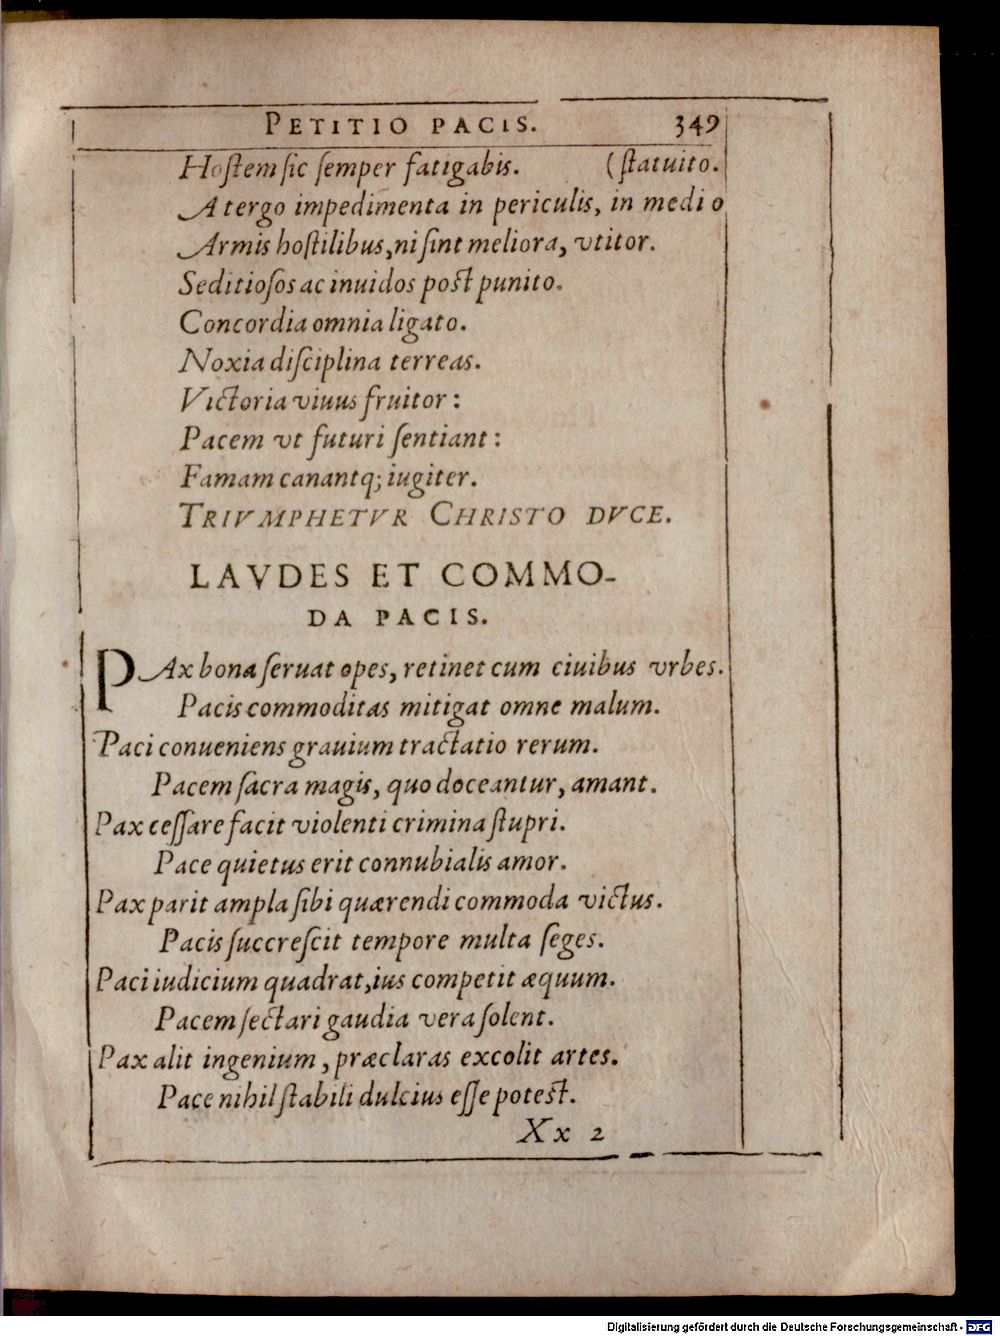 PETITIO PACIS. 349
Hoſtem ſic ſemper fatigabis. (ſtatuito.
A tergo impedimenta in periculis, in medio
Armis hoſtilibus, ni ſint meliora, vtitor.
Seditioſos ac inuidos poſt punito.
Concordia omnia ligato.
Noxia diſciplina terreas.
Victoria viuus fruitor:
Pacem vt futuri ſentiant:
Famam canantq; iugiter.
TRIVMPHETVR CHRISTO DVCE.
LAVDES ET COMMO-
DA PACIS.
PAx bona ſeruat opes, retinet cum ciuibus vrbes.
Pacis commoditas mitigat omne malum.
Paci conueniens grauium tractatio rerum.
Pacem ſacra magis, quo doceantur, amant.
Pax ceſſare facit violenti crimina ſtupri.
Pace quietus erit connubialis amor.
Pax parit ampla ſibi quærendi commoda victus.
Pacis ſuccreſcit tempore multa ſeges.
Paci iudicium quadrat, ius competit æquum.
Pacem ſectari gaudia vera ſolent.
Pax alit ingenium, præclaras excolit artes.
Pace nihil ſtabili dulcius eſſe poteſt.
Xx 2
Digitalisierung gefördert durch die Deutsche Forschungsgemeinschaft - DFG